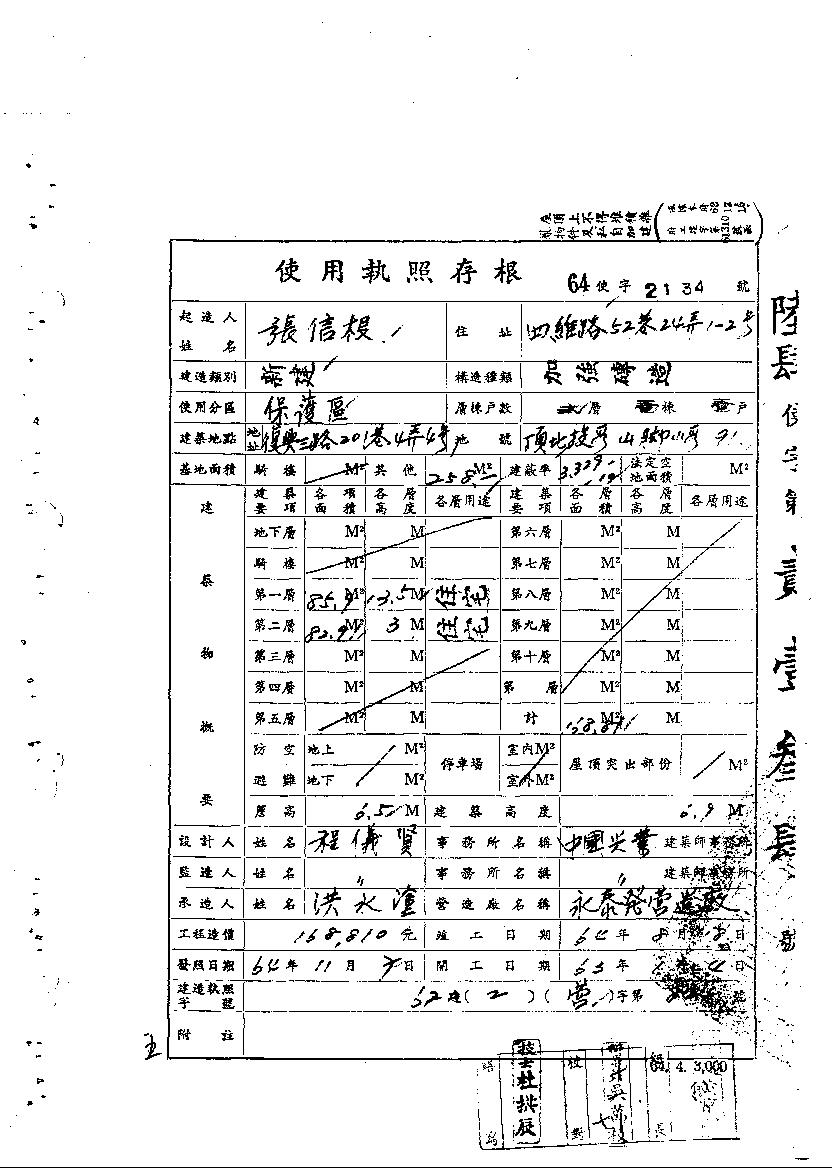 屋頂上不得堆積雜
物件及私自加建
使用執照存根 64使字2134號
起造人姓名 張信投 住址 四維路52巷24弄1-2号
建造類別 新建 構造種類 加強磚造
使用分區 保護區 層棟戶數 層 棟 戶
建築地點 地址 復興三路201巷4弄4号 地號 頂北投段
基地面積 騎樓 M² 其他 258 M² 建蔽率 法定空地面積 M²
建築物概要
建築要項 各項面積 各層高度 各層用途 建築要項 各層面積 各層高度 各層用途
地下層 M² M 第六層 M² M
騎樓 M² M 第七層 M² M
第一層 85.9 M² 3.5 M 住宅 第八層 M² M
第二層 82.91 M² 3 M 住宅 第九層 M² M
第三層 M² M 第十層 M² M
第四層 M² M 第 層 M² M
第五層 M² M 計 168.81 M² M
防空避難 地上 M² 地下 M² 停車場 室內M² 室外M² 屋頂突出部份 M²
簷高 6.5 M 建築高度 6.9 M
設計人 姓名 程儀賢 事務所名稱 中國興業 建築師事務所
監造人 姓名 〃 事務所名稱 〃 建築師事務所
承造人 姓名 洪永 營造廠名稱 永泰發營造廠
工程造價 168,810元 竣工日期 64年8月 日
發照日期 64年11月 日 開工日期 63年 月 日
建造執照字號 62建(2)(營)字第 號
附註
陸肆使字第貳壹叁肆號
繕寫 技士杜 校對 組長
64. 4. 3,000